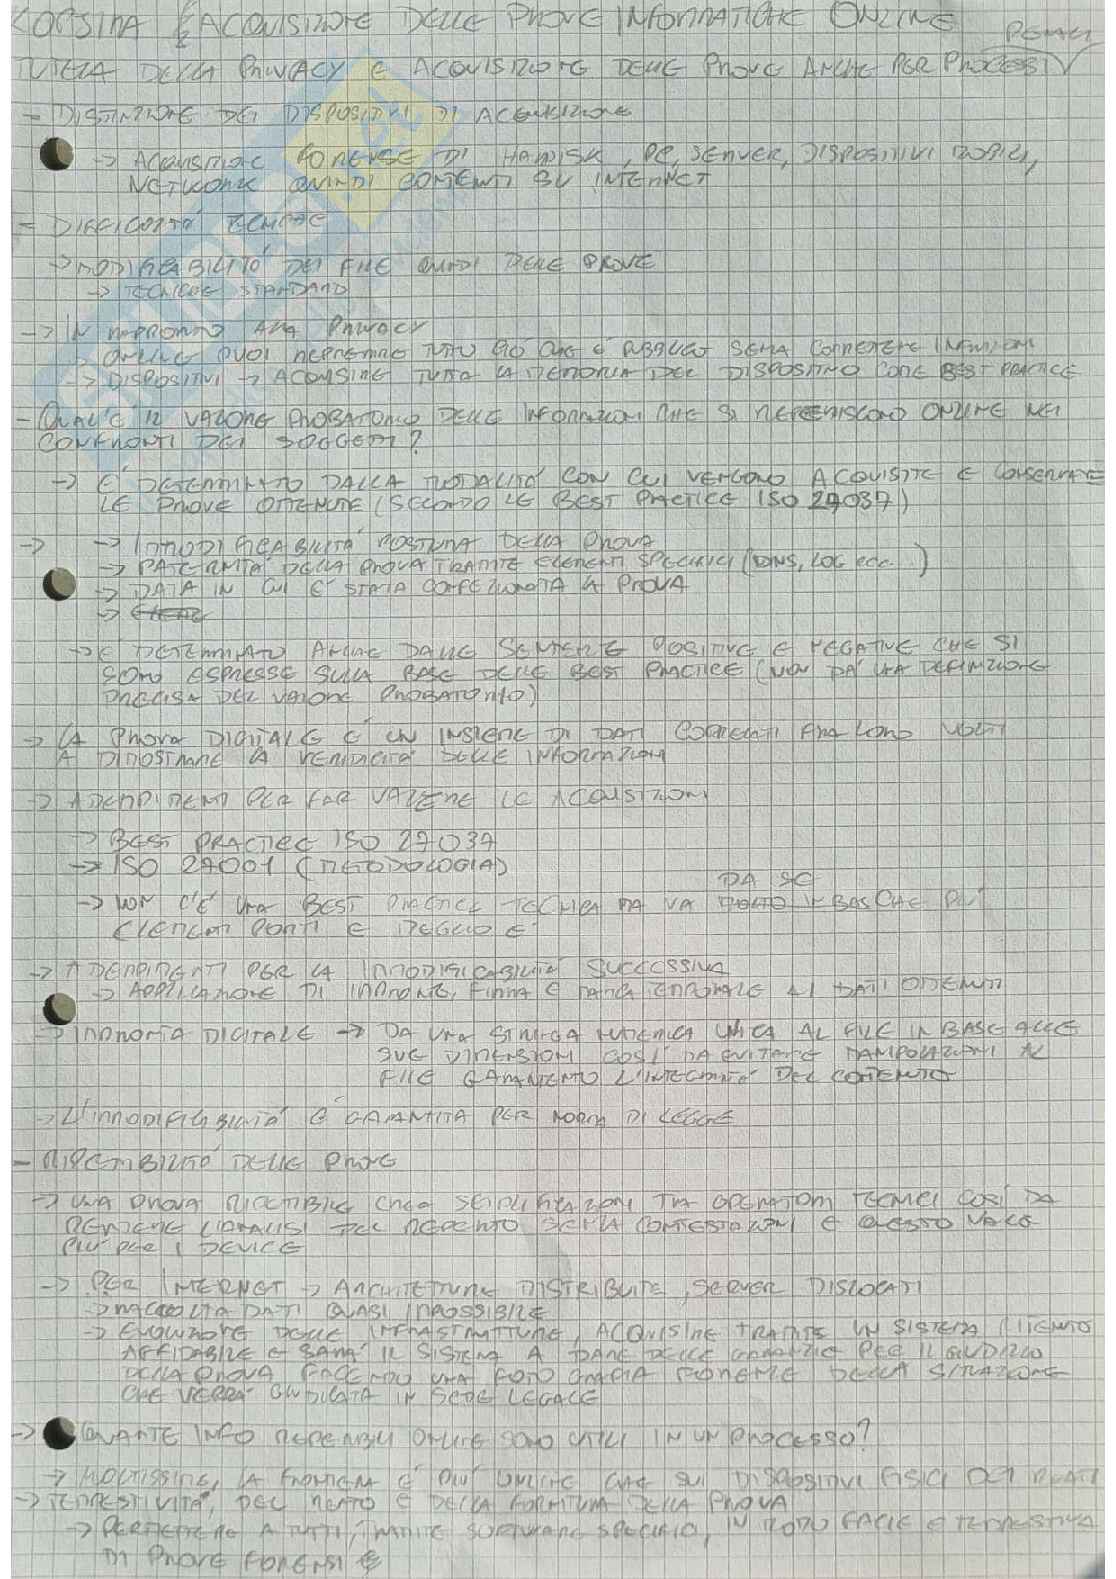 ACQUISIZIONE DELLE PROVE INFORMATICHE ONLINE
TUTELA DELLA PRIVACY E ACQUISIZIONE DELLE PROVE ANCHE PER PROCESSI
- DISTINZIONE DEI DISPOSITIVI DI ACQUISIZIONE
-> ACQUISIZIONE FORENSE DI HARDISK, PC, SERVER, DISPOSITIVI MOBILI,
NETWORK QUINDI CONTENUTI SU INTERNET
- DIFFICOLTÀ TECNICHE
-> MODIFICABILITÀ DEI FILE QUINDI DELLE PROVE
-> TECNICHE STANDARD
-> IN RAPPORTO ALLA PRIVACY
-> ONLINE PUOI REPERIRE TUTTO CIÒ CHE È PUBBLICO SENZA COMMETTERE INFRAZIONI
-> DISPOSITIVI -> ACQUISIRE TUTTA LA MEMORIA DEL DISPOSITIVO COME BEST PRACTICE
- QUAL'È IL VALORE PROBATORIO DELLE INFORMAZIONI CHE SI REPERISCONO ONLINE NEI
CONFRONTI DEI SOGGETTI?
-> È DETERMINATO DALLA MODALITÀ CON CUI VENGONO ACQUISITE E CONSERVATE
LE PROVE OTTENUTE (SECONDO LE BEST PRACTICE ISO 27037)
-> -> IMMODIFICABILITÀ POSTUMA DELLA PROVA
-> PATERNITÀ DELLA PROVA TRAMITE ELEMENTI SPECIFICI (DNS, LOG ecc...)
-> DATA IN CUI È STATA CONFEZIONATA LA PROVA
->
-> È DETERMINATO ANCHE DALLE SENTENZE POSITIVE E NEGATIVE CHE SI
SONO ESPRESSE SULLA BASE DELLE BEST PRACTICE (NON DÀ UNA DEFINIZIONE
PRECISA DEL VALORE PROBATORIO)
-> LA PROVA DIGITALE È UN INSIEME DI DATI COERENTI FRA LORO VOLTI
A DIMOSTRARE LA VERIDICITÀ DELLE INFORMAZIONI
-> ADEMPIMENTI PER FAR VALERE LE ACQUISIZIONI
-> BEST PRACTICE ISO 27037
-> ISO 27001 (METODOLOGIA)
DA SÉ
-> NON C'È UNA BEST PRACTICE TECNICA MA VA CHE PIÙ
ELEMENTI PORTI E MEGLIO È
-> ADEMPIMENTI PER LA IMMODIFICABILITÀ SUCCESSIVA
-> APPLICAZIONE DI IMPRONTE, FIRMA E MARCA TEMPORALE AI DATI OTTENUTI
-> IMPRONTA DIGITALE -> DA UNA STRINGA NUMERICA UNICA AL FILE IN BASE ALLE
SUE DIMENSIONI COSÌ DA EVITARE MANIPOLAZIONI AL
FILE GARANTENDO L'INTEGRITÀ DEL CONTENUTO
-> L'IMMODIFICABILITÀ È GARANTITA PER NORMA DI LEGGE
- RIPETIBILITÀ DELLE PROVE
-> UNA PROVA RIPETIBILE CREA SEMPLIFICAZIONI TRA OPERATORI TECNICI COSÌ DA
RENDERE L'ANALISI DEL REPERTO SENZA CONTESTAZIONI E QUESTO VALE
PIÙ PER I DEVICE
-> PER INTERNET -> ARCHITETTURE DISTRIBUITE, SERVER DISLOCATI
-> RACCOLTA DATI QUASI IMPOSSIBILE
-> EVOLUZIONE DELLE INFRASTRUTTURE, ACQUISIRE TRAMITE UN SISTEMA RITENUTO
AFFIDABILE E SARÀ IL SISTEMA A DARE DELLE GARANZIE PER IL GIUDIZIO
DELLA PROVA FACENDO UNA FOTOGRAFIA FORENSE DELLA SITUAZIONE
CHE VERRÀ GIUDICATA IN SEDE LEGALE
-> QUANTE INFO REPERIBILI ONLINE SONO UTILI IN UN PROCESSO?
-> MOLTISSIME, LA FRONTIERA È PIÙ ONLINE CHE SUI DISPOSITIVI FISICI DEI REATI
-> TEMPESTIVITÀ, DEL REATO E DELLA FORNITURA DELLA PROVA
-> PERMETTERE A TUTTI, TRAMITE SOFTWARE SPECIFICO, IN MODO FACILE E TEMPESTIVO
DI PROVE FORENSI